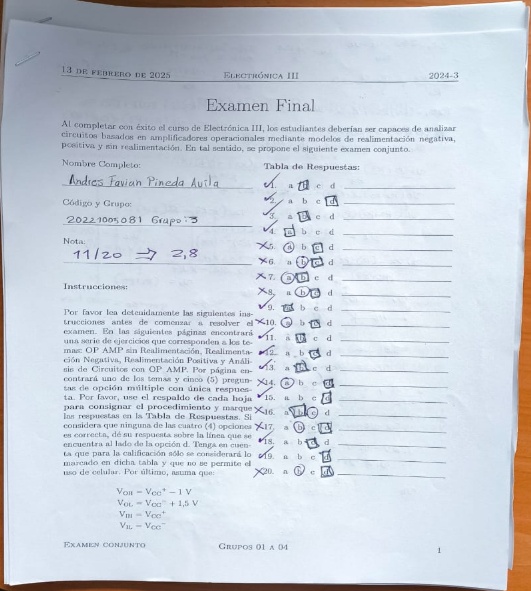 13 DE FEBRERO DE 2025 ELECTRÓNICA III 2024-3
Examen Final
Al completar con éxito el curso de Electrónica III, los estudiantes deberían ser capaces de analizar
circuitos basados en amplificadores operacionales mediante modelos de realimentación negativa,
positiva y sin realimentación. En tal sentido, se propone el siguiente examen conjunto.
Nombre Completo:
Andres Favian Pineda Avila
Código y Grupo:
20221005081 Grupo: 3
Nota:
11/20 ⇒ 2,8
Instrucciones:
Por favor lea detenidamente las siguientes ins-
trucciones antes de comenzar a resolver el
examen. En las siguientes páginas encontrará
una serie de ejercicios que corresponden a los te-
mas: OP AMP sin Realimentación, Realimenta-
ción Negativa, Realimentación Positiva y Análi-
sis de Circuitos con OP AMP. Por página en-
contrará uno de los temas y cinco (5) pregun-
tas de opción múltiple con única respues-
ta. Por favor, use el respaldo de cada hoja
para consignar el procedimiento y marque
las respuestas en la Tabla de Respuestas. Si
considera que ninguna de las cuatro (4) opciones
es correcta, dé su respuesta sobre la línea que se
encuentra al lado de la opción d. Tenga en cuen-
ta que para la calificación sólo se considerará lo
marcado en dicha tabla y que no se permite el
uso de celular. Por último, asuma que:
V_OH = V_CC⁺ − 1 V
V_OL = V_CC⁻ + 1,5 V
V_IH = V_CC⁺
V_IL = V_CC⁻
Tabla de Respuestas:
1. a b c d
2. a b c d
3. a b c d
4. a b c d
5. a b c d
6. a b c d
7. a b c d
8. a b c d
9. a b c d
10. a b c d
11. a b c d
12. a b c d
13. a b c d
14. a b c d
15. a b c d
16. a b c d
17. a b c d
18. a b c d
19. a b c d
20. a b c d
EXAMEN CONJUNTO GRUPOS 01 A 04 1